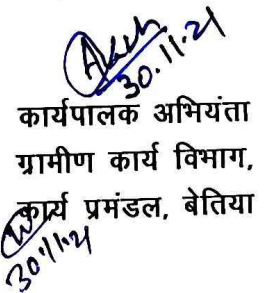 30.11.21
कार्यपालक अभियंता
ग्रामीण कार्य विभाग,
कार्य प्रमंडल, बेतिया
30.11.21